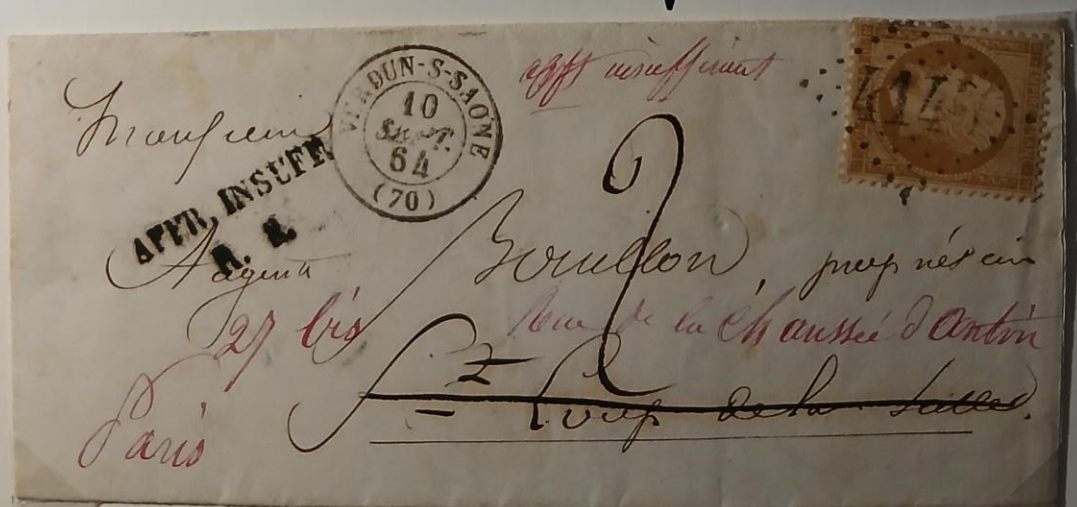 VERDUN-S-SAONE
10
SEPT.
64
(70)
afft insuffisant
Monsieur
AFFR. INSUFF.
2
Bouillon, propriétaire
27 bis Rue de la Chaussée d'Antin
St Loup de la Salle
Paris